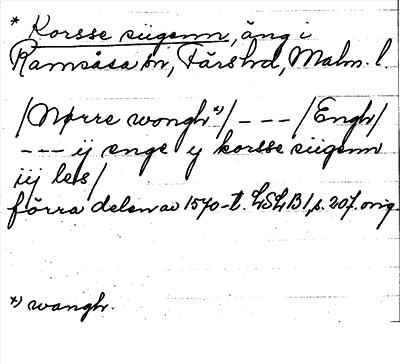 * Korsse siigenn, äng i
Ramsåsa sn, Färs hd, Malm. l.
/Nørre wongh*)/ - - - /Engh/
- - - ij enge ij korsse siigenn
iij les/
förra delen av 1570-t. LSLB 1, s. 207. orig.
*) wangh.